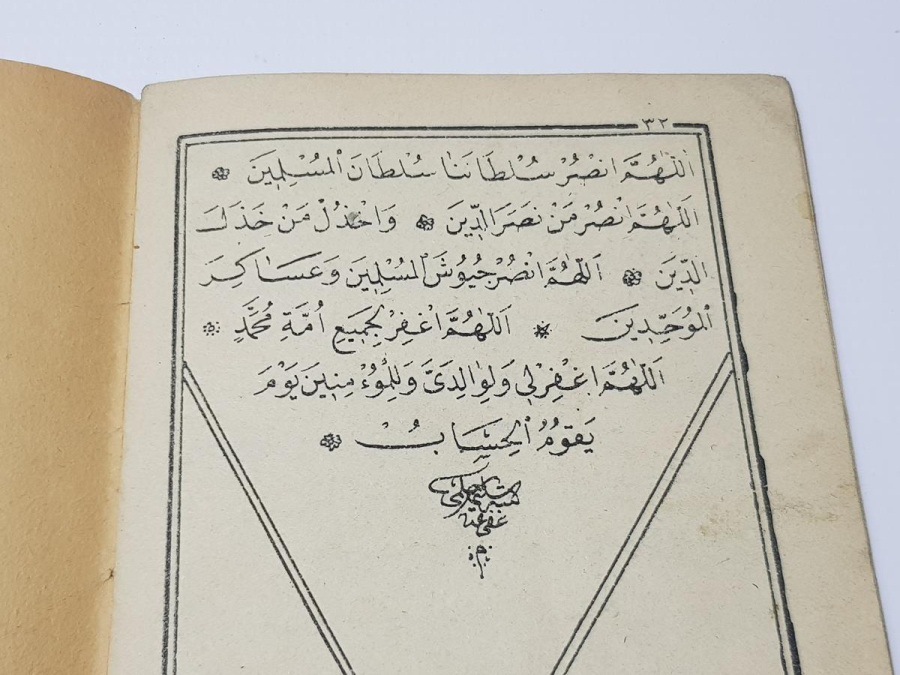 ٣٢
اَللّٰهُمَّ انْصُرْ سُلْطَانَنَا سُلْطَانَ الْمُسْلِمِينَ
اَللّٰهُمَّ انْصُرْ مَنْ نَصَرَ الدِّينَ وَاخْذُلْ مَنْ خَذَلَ
الدِّينَ اَللّٰهُمَّ انْصُرْ جُيُوشَ الْمُسْلِمِينَ وَعَسَاكِرَ
الْمُوَحِّدِينَ اَللّٰهُمَّ اغْفِرْ لِجَمِيعِ اُمَّةِ مُحَمَّدٍ
اَللّٰهُمَّ اغْفِرْلِى وَلِوَالِدَىَّ وَلِلْمُوءْمِنِينَ يَوْمَ
يَقُومُ الْحِسَابُ
عفى عنه